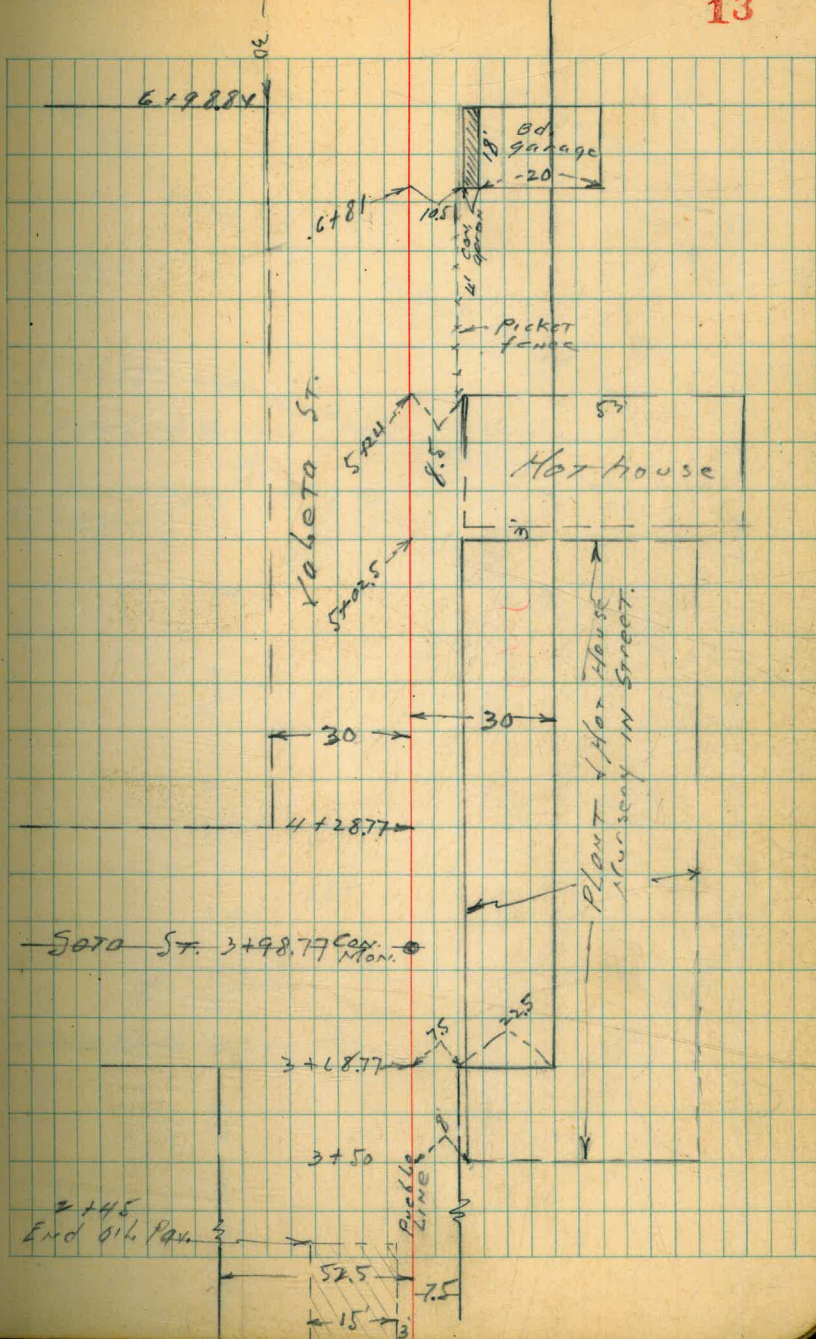 13
30
6+98.84
Bd.
garage
18'
20
6+81
10.5
4' Con.
apron
Picket
fence
53'
5+24
8.5
Hot house
3'
5+02.5
30
30
Plant & Hot House
Nursery IN Street.
4+28.77
Soto St. 3+98.77 Con.
Mon.
7.5
22.5
3+68.77
8'
3+50
Pueblo
LINE
2+45
End Oil Pav.
52.5
7.5
15'
3'